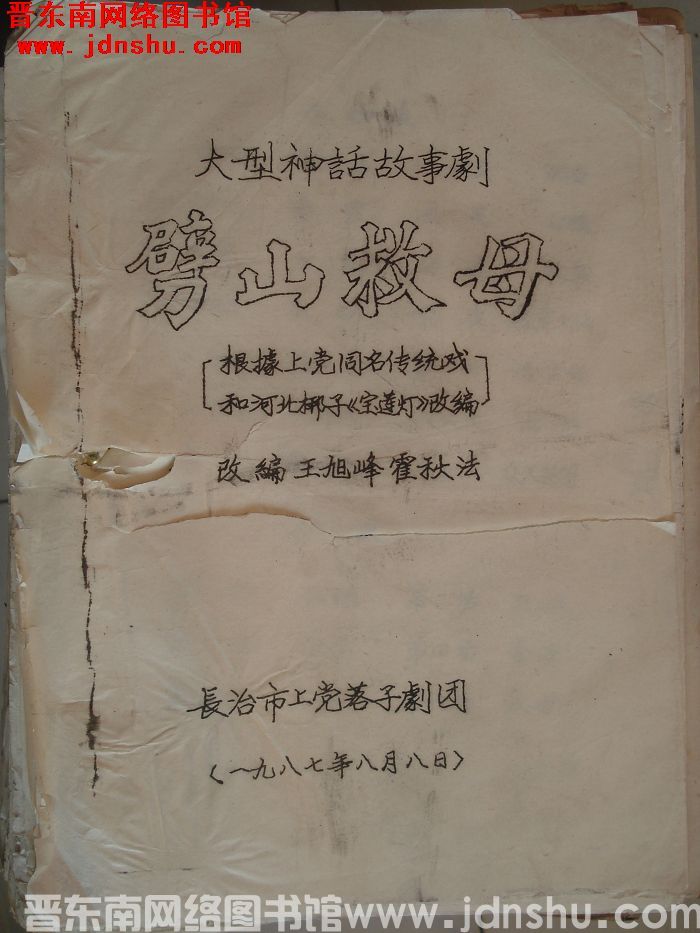 晋东南网络图书馆
www.jdnshu.com
大型神話故事劇
劈山救母
根據上党同名传统戏
和河北梆子《宝莲灯》改编
改編王旭峰霍秋法
長治市上党落子劇团
(一九八七年八月八日)
晋东南网络图书馆www.jdnshu.com